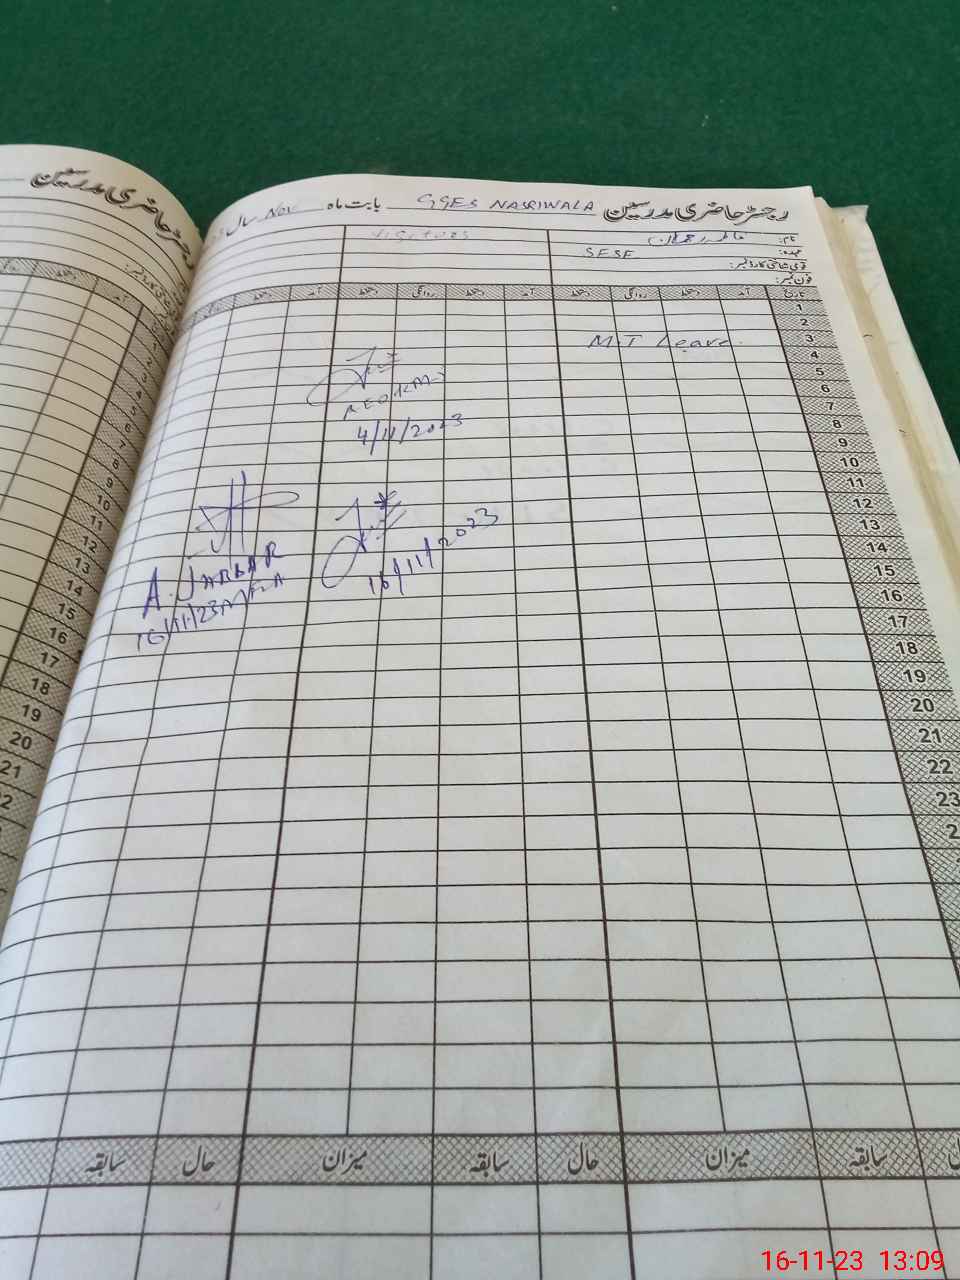 رجسٹر حاضری مدرسین
رجسٹر حاضری مدرسین GGES NASRIWALA بابت ماہ Nov سال
نام:
visitors
عہدہ: SESE
قومی شناختی کارڈ نمبر:
فون نمبر:
تاریخ آمد دستخط روانگی دستخط آمد دستخط روانگی دستخط آمد دستخط
1
2
3
M.T Leave.
4
5
6
7
8
9
10
11
12
13
14
15
16
17
18
19
20
21
22
23
4/11/2023
16/11/2023
A. JABBAR
16/11/23 MEA
1
2
3
4
5
6
7
8
9
10
11
12
13
14
15
16
17
18
19
20
21
سابقہ میزان حال سابقہ میزان حال سابقہ
16-11-23 13:09